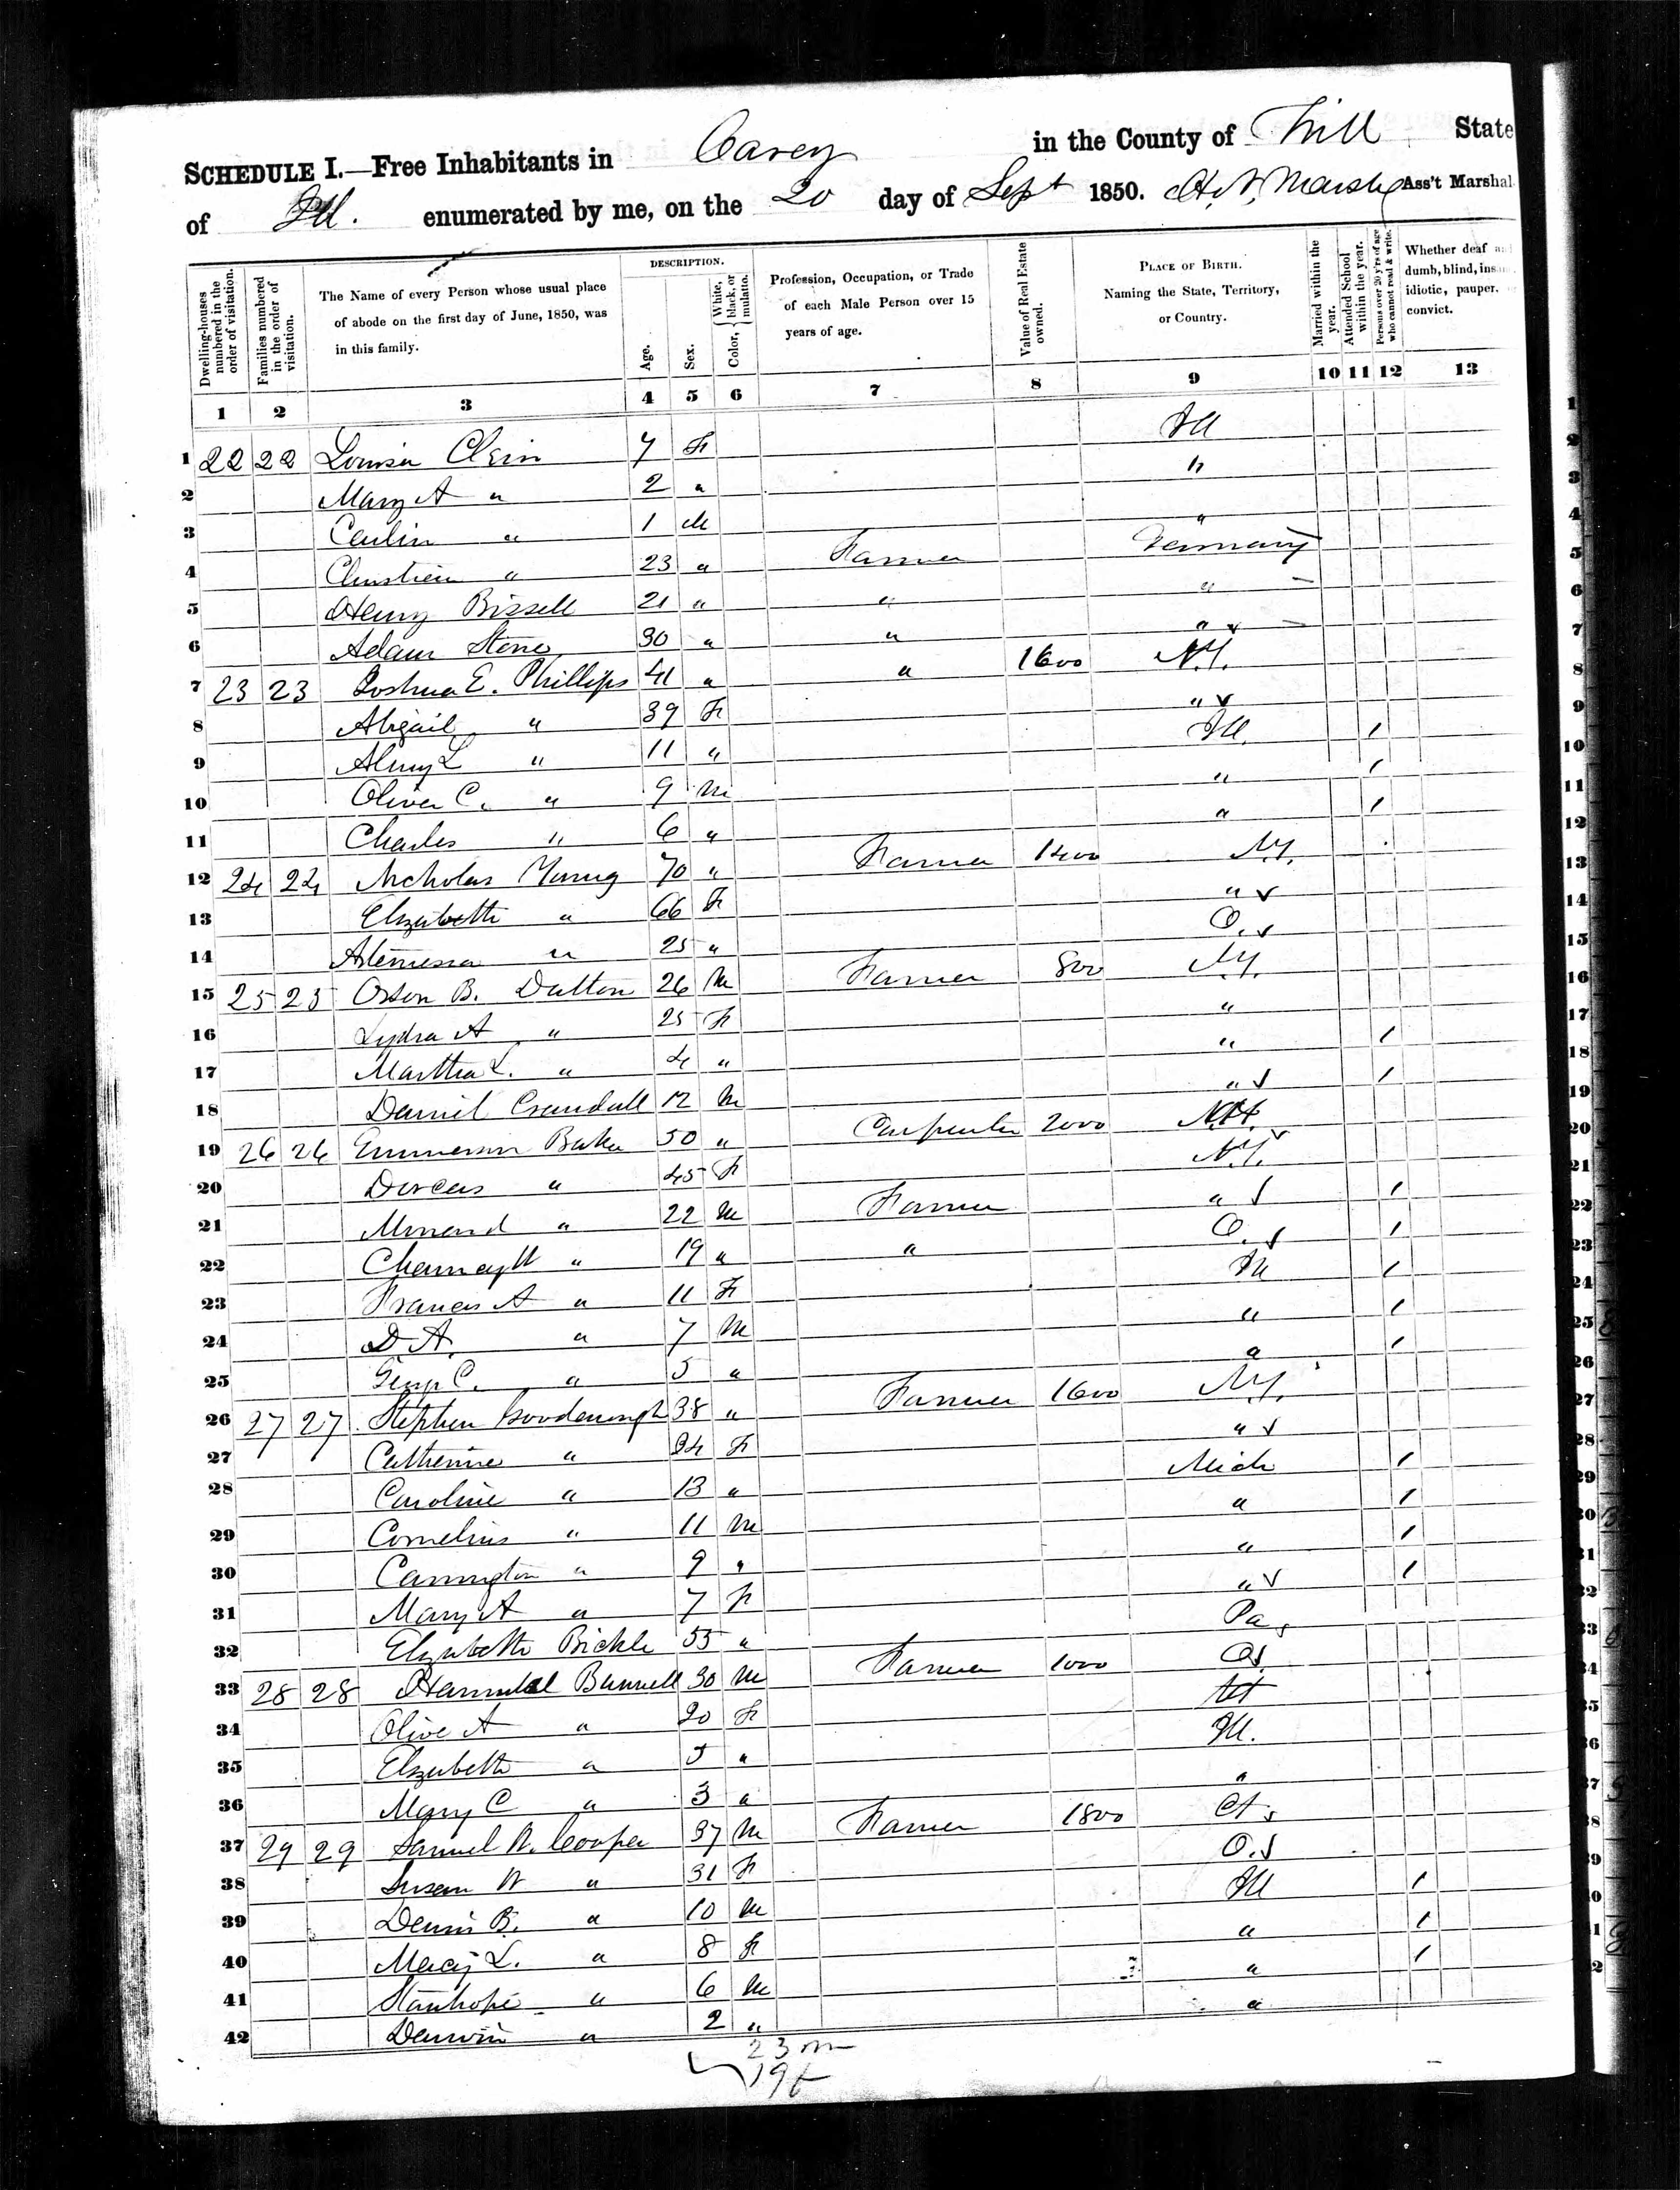 SCHEDULE I.—Free Inhabitants in Carey in the County of Will State
of Ill. enumerated by me, on the 20 day of Sept 1850. Ass't Marshal
Dwelling-houses numbered in the order of visitation.
Families numbered in the order of visitation.
The Name of every Person whose usual place of abode on the first day of June, 1850, was in this family.
DESCRIPTION.
Age.
Sex.
Color, { White, black, or mulatto.
Profession, Occupation, or Trade of each Male Person over 15 years of age.
Value of Real Estate owned.
PLACE OF BIRTH. Naming the State, Territory, or Country.
Married within the year.
Attended School within the year.
Persons over 20 y'rs of age who cannot read & write.
Whether deaf and dumb, blind, insane, idiotic, pauper, or convict.
1 2 3 4 5 6 7 8 9 10 11 12 13
1 22 22 Louisa 7 F Ill
2 Mary A " 2 " "
3 " 1 M "
4 " 23 " Farmer Germany
5 Henry Bissell 21 " " "
6 Adam Stone 30 " " "
7 23 23 Joshua E. Phillips 41 " " 1600 N.Y.
8 Abigail " 39 F "
9 L " 11 " Ill. 1
10 Oliver C. " 9 M " 1
11 Charles " 6 " " 1
12 24 24 Nicholas Young 70 " Farmer 1400 N.Y.
13 Elizabeth " 66 F "
14 " 25 " O.
15 25 25 Orson B. Dalton 26 M Farmer 800 N.Y.
16 Lydia A " 25 F "
17 Martha L. " 4 " " 1
18 Daniel Crandall 12 M " 1
19 26 26 Emmerson Baker 50 " Carpenter 2000 N.H.
20 Dorcas " 45 F N.Y.
21 " 22 M Farmer " 1
22 " 19 " " O. 1
23 Frances A " 11 F Ill 1
24 D. A. " 7 M " 1
25 C. " 5 " " 1
26 27 27 Stephen Goodenough 38 " Farmer 1600 N.Y.
27 Catherine " 34 F "
28 Caroline " 13 " Mich 1
29 Cornelius " 11 M " 1
30 Carrington " 9 " " 1
31 Mary A " 7 F " 1
32 Elizabeth Bickle 55 " Pa
33 28 28 Bunnell 30 M Farmer 1000 O.
34 Olive A " 20 F
35 Elizabeth " 5 " Ill.
36 Mary C " 3 " "
37 29 29 Samuel W. Cooper 37 M Farmer 1800 Ct
38 Susan W " 31 F O.
39 Dennis B. " 10 M Ill 1
40 Macy L. " 8 F " 1
41 Stanhope " 6 M " 1
42 Darwin " 2 " "
23 m
19 f